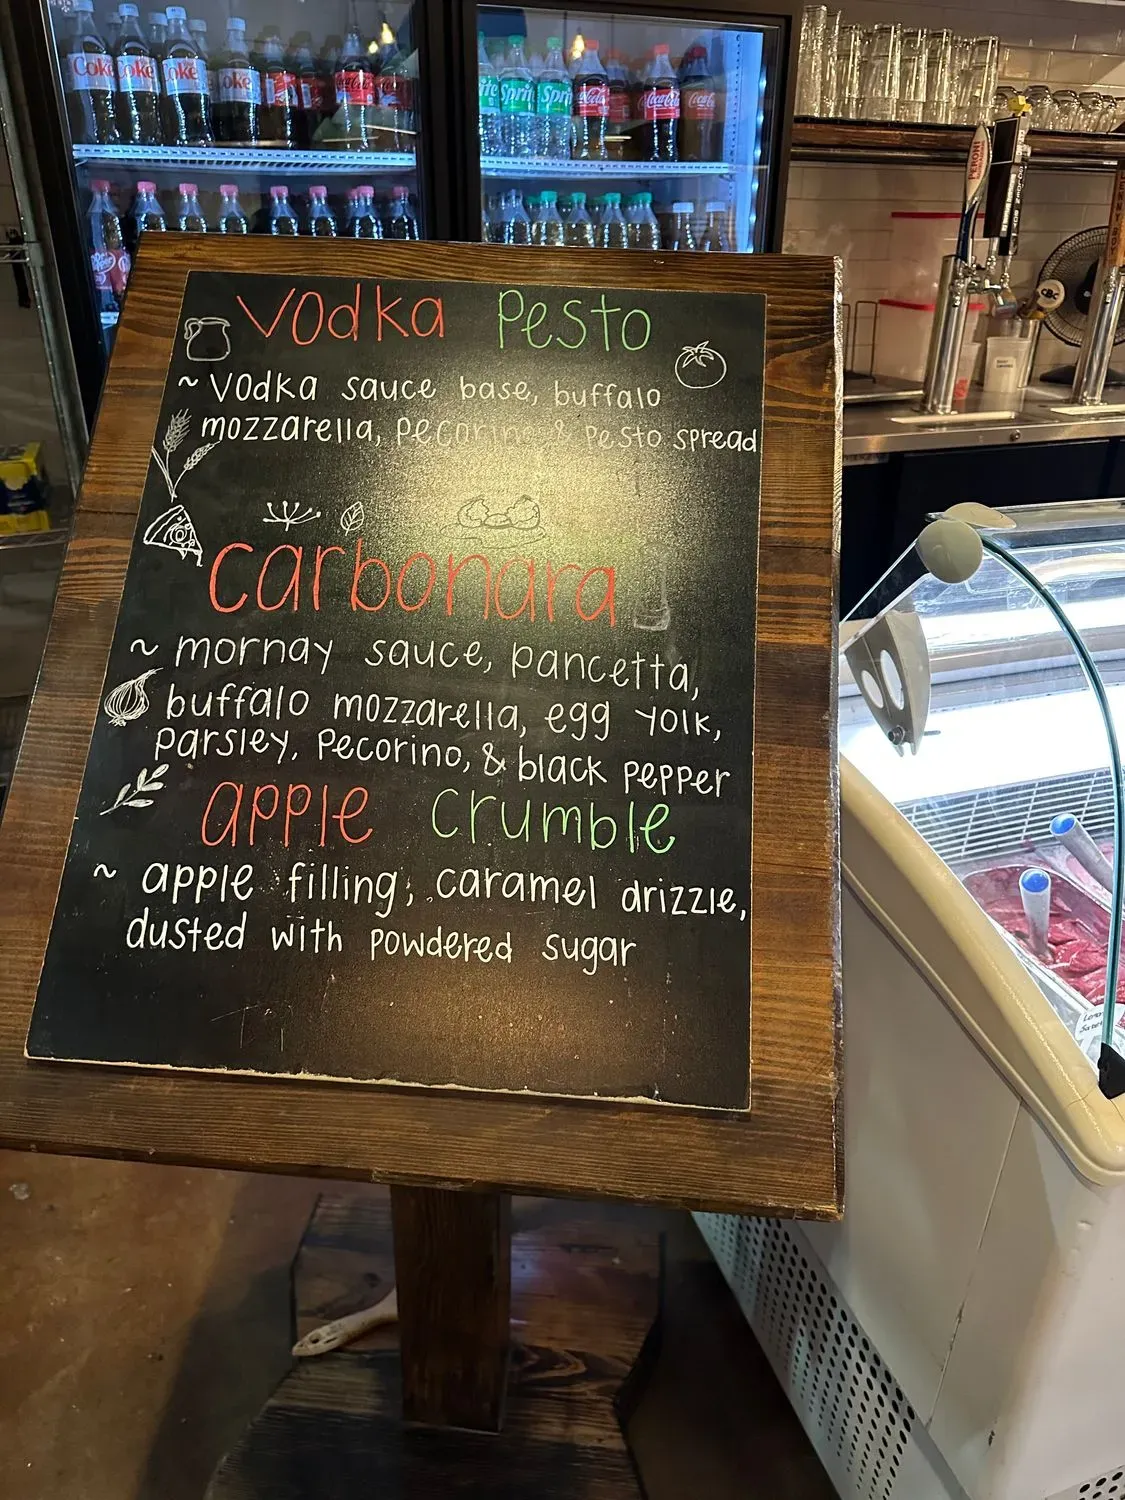 Coke
Coke
Coke
Coke
Coca-Cola
Sprite
Sprite
Sprite
Coca-Cola
Coca-Cola
PERONI
Vodka Pesto
~ Vodka sauce base, buffalo
mozzarella, pecorino & pesto spread
carbonara
~ mornay sauce, pancetta,
buffalo mozzarella, egg yolk,
parsley, pecorino, & black pepper
apple crumble
~ apple filling, caramel drizzle,
dusted with powdered sugar
CBC